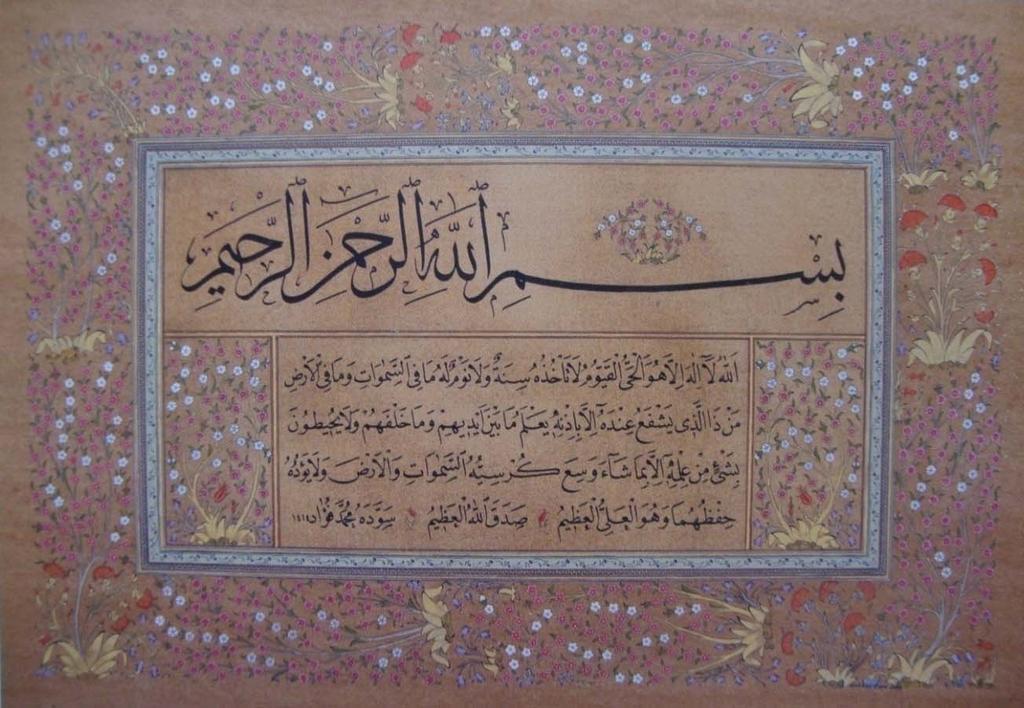 بِسْمِ اللّٰهِ الرَّحْمٰنِ الرَّحِيمِ
اَللّٰهُ لَٓا اِلٰهَ اِلَّا هُوَ الْحَىُّ الْقَيُّومُ لَا تَأْخُذُهُ سِنَةٌ وَلَا نَوْمٌ لَهُ مَا فِى السَّمٰوَاتِ وَمَا فِى الْاَرْضِ
مَنْ ذَا الَّذِى يَشْفَعُ عِنْدَهُٓ اِلَّا بِاِذْنِهِ يَعْلَمُ مَا بَيْنَ اَيْدِيهِمْ وَمَا خَلْفَهُمْ وَلَا يُحِيطُونَ
بِشَىْءٍ مِنْ عِلْمِهِٓ اِلَّا بِمَا شَٓاءَ وَسِعَ كُرْسِيُّهُ السَّمٰوَاتِ وَالْاَرْضَ وَلَا يَؤُدُهُ
حِفْظُهُمَا وَهُوَ الْعَلِىُّ الْعَظِيمُ صَدَقَ اللّٰهُ الْعَظِيمُ سَوَّدَهُ مُحَمَّد فؤاد